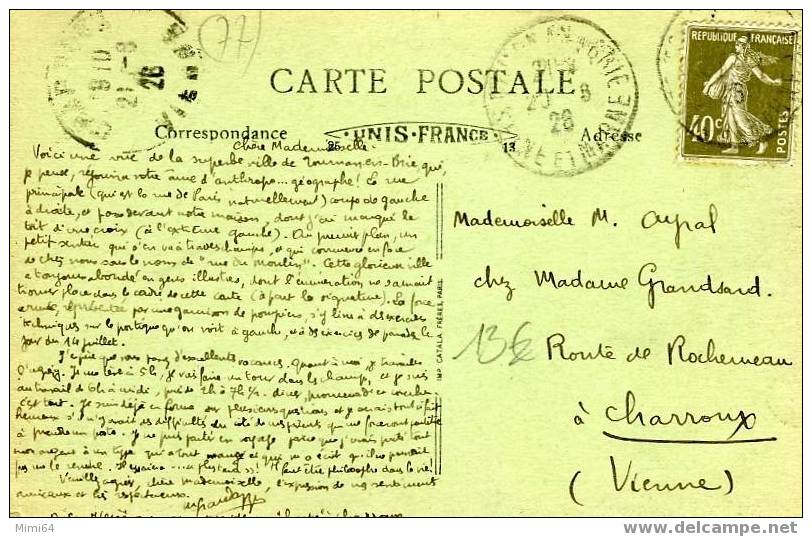 77
RÉPUBLIQUE FRANÇAISE
40c
POSTES
CARTE POSTALE
Correspondance
UNIS-FRANCE
Adresse
13
Chère Mademoiselle.
Voici une vue de la superbe ville de Tournan-en-Brie qui,
je pense, réjouira votre âme d'anthropo... géographe ! La rue
principale (qui est la rue de Paris naturellement) coupe de gauche
à droite, et passe devant notre maison, dont j'ai marqué le
toit d'une croix (à l'extrême gauche). Au premier plan, un
petit sentier qui s'en va à travers champs, et qui commence en face
de chez nous sous le nom de "rue du Moulin". Cette glorieuse ville
a toujours abondé en gens illustres, dont l'énumération ne saurait
trouver place dans le cadre de cette carte (à part la signature). La force
armée, représentée par une garnison de pompiers, s'y livre à des exercices
techniques sur le portique qu'on voit à gauche, et à des exercices de parade, le
jour du 14 juillet.
J'espère que vous passez d'excellentes vacances. Quant à moi, je travaille
Je me lève à 5h, je vais faire un tour dans les champs, et je suis
au travail de 6h à midi, puis de 2h à 7h ½. dîner, promenade et coucher
c'est tout. Je suis déjà en forme sur plusieurs questions et je serais tout à fait
heureux si je n'avais des difficultés du côté de mes parents qui me
à prendre un poste. Je ne suis parti en voyage parce que j'avais prêté tout
mon argent à un type qui a tout mangé et qui m'a écrit qu'il ne pouvait
pas me le rendre. Il faut être philosophe dans la vie !
Veuillez agréer, chère Mademoiselle, l'expression de mes sentiments
amicaux et très respectueux.
IMP. CATALA FRÈRES, PARIS
Mademoiselle M. Aypal
chez Madame Grandsard.
13€
Route de Rochemeau
à Charroux
(Vienne)
Mimi64
delcampe.net